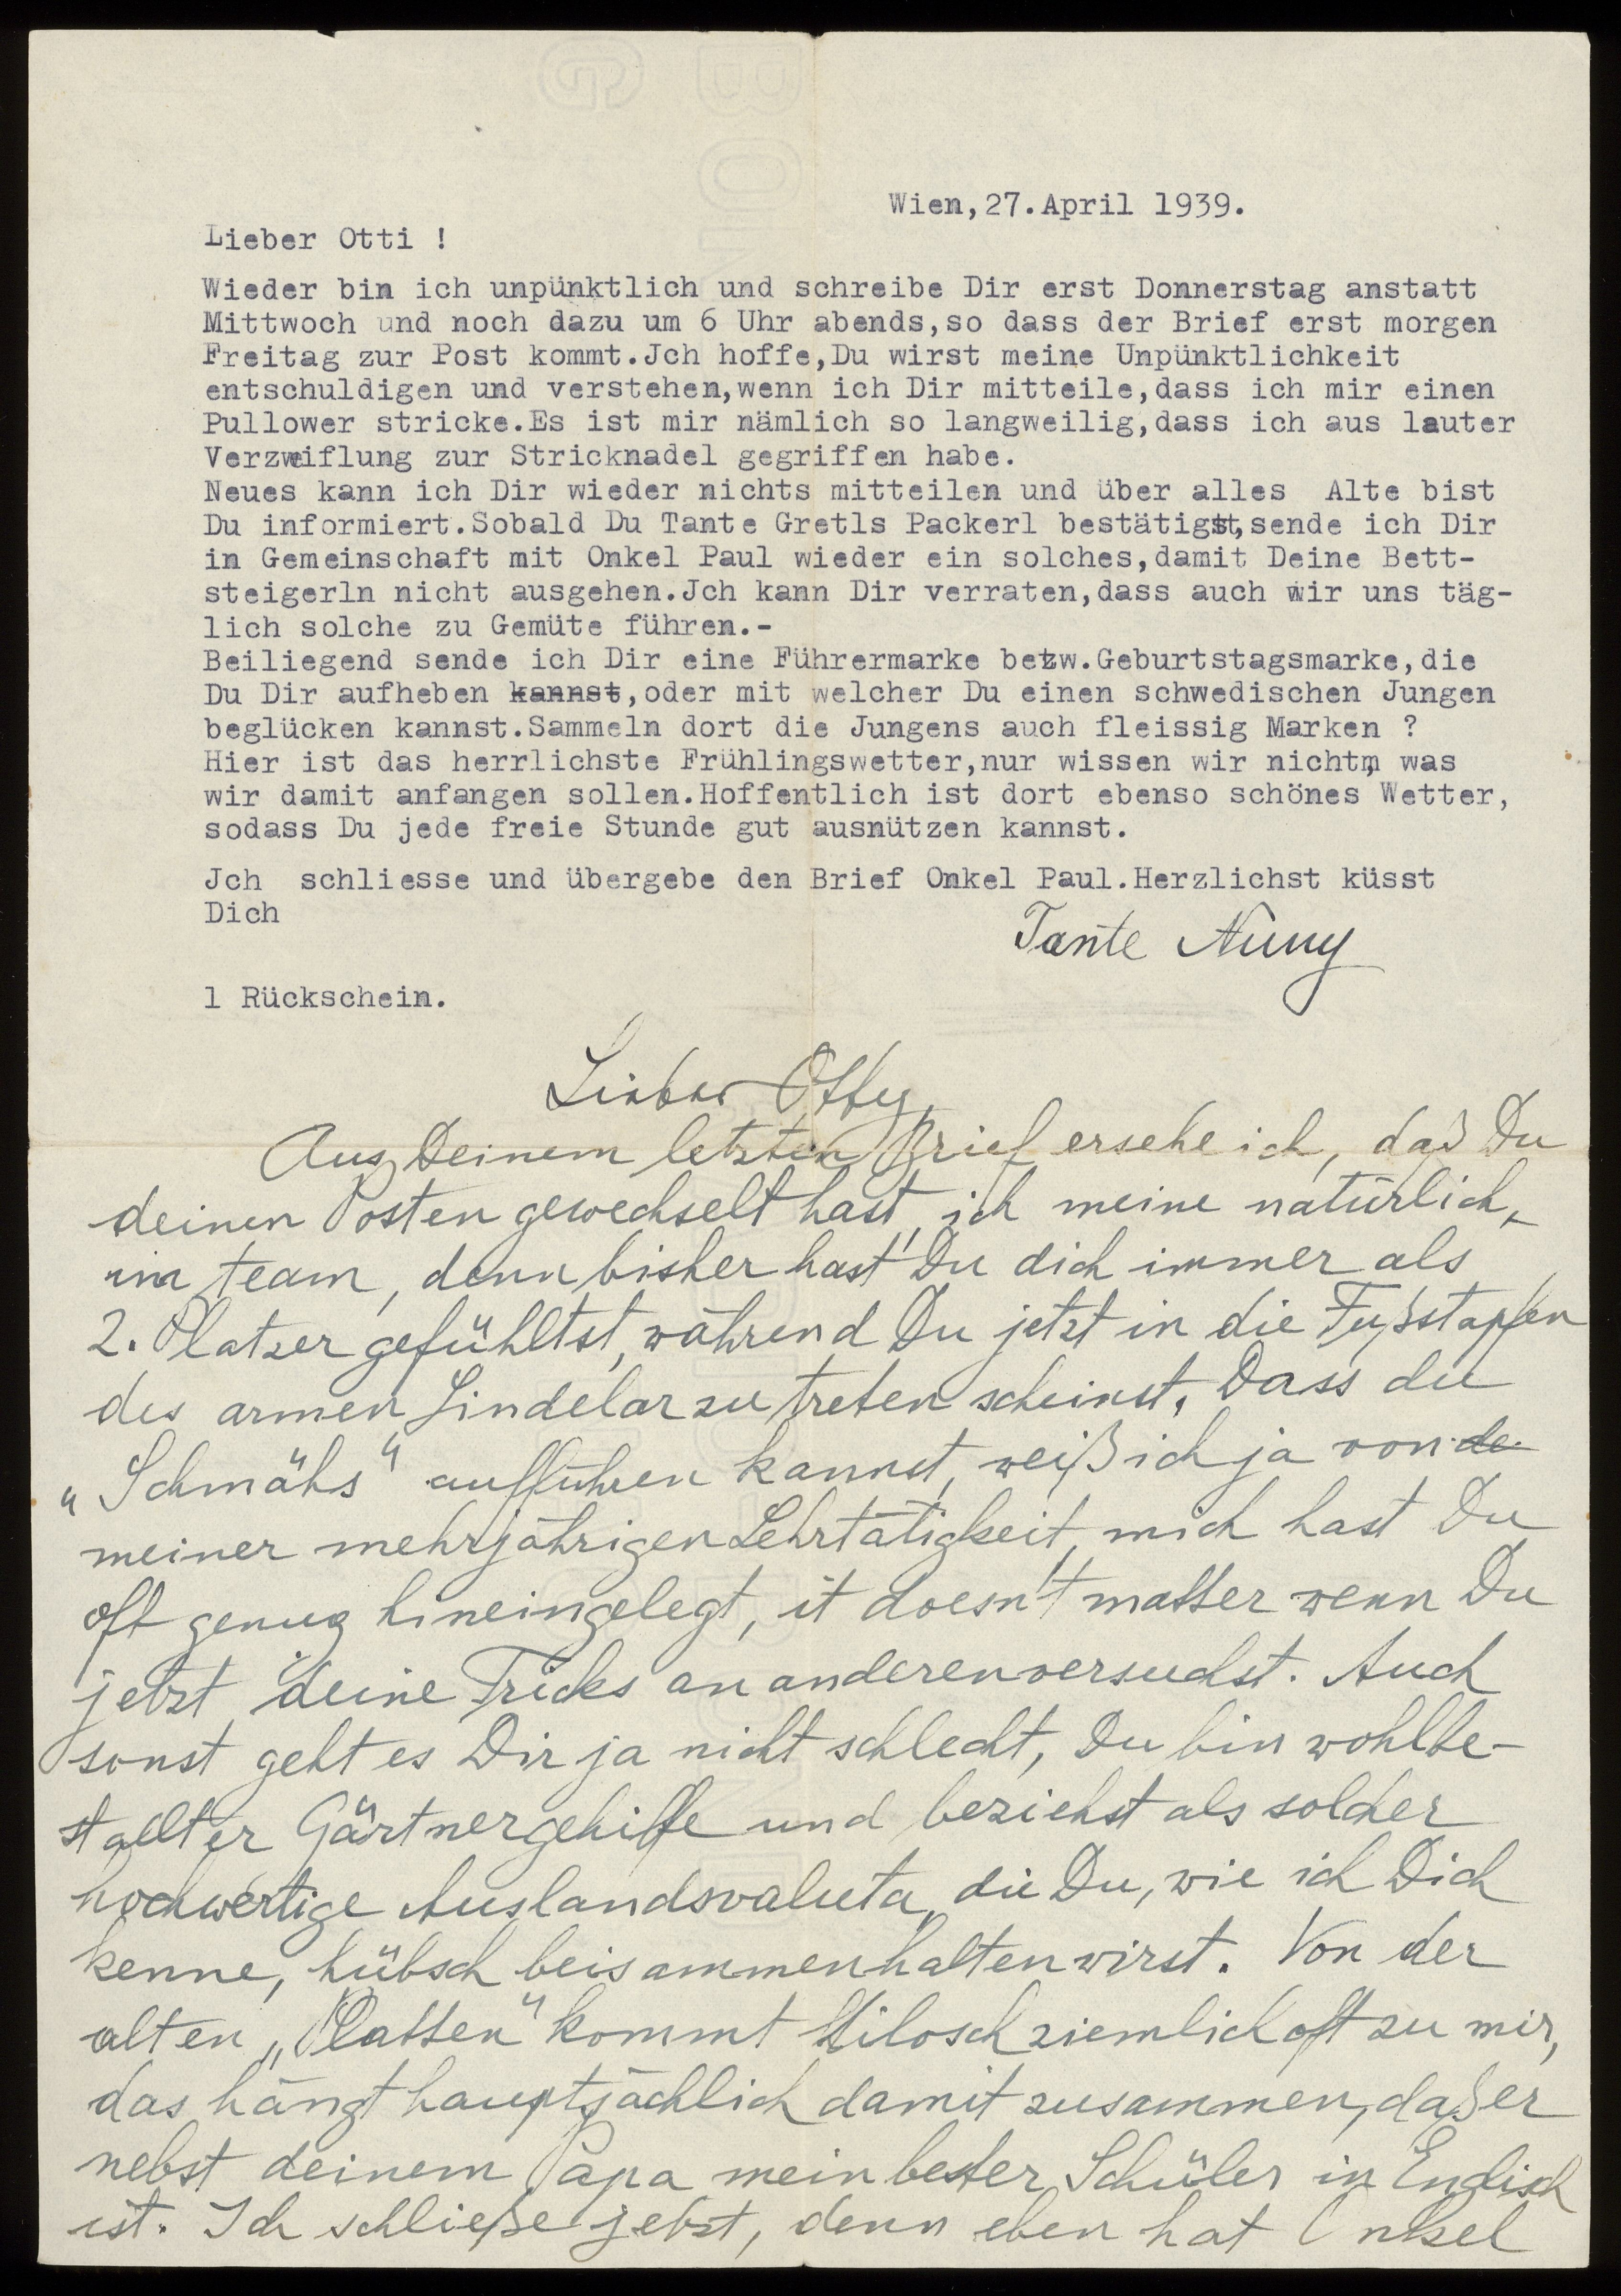 Wien,27.April 1939.
Lieber Otti !
Wieder bin ich unpünktlich und schreibe Dir erst Donnerstag anstatt
Mittwoch und noch dazu um 6 Uhr abends,so dass der Brief erst morgen
Freitag zur Post kommt.Jch hoffe,Du wirst meine Unpünktlichkeit
entschuldigen und verstehen,wenn ich Dir mitteile,dass ich mir einen
Pullower stricke.Es ist mir nämlich so langweilig,dass ich aus lauter
Verzweiflung zur Stricknadel gegriffen habe.
Neues kann ich Dir wieder nichts mitteilen und über alles Alte bist
Du informiert.Sobald Du Tante Gretls Packerl bestätigst,sende ich Dir
in Gemeinschaft mit Onkel Paul wieder ein solches,damit Deine Bett-
steigerln nicht ausgehen.Jch kann Dir verraten,dass auch wir uns täg-
lich solche zu Gemüte führen.-
Beiliegend sende ich Dir eine Führermarke betzw.Geburtstagsmarke,die
Du Dir aufheben kannst,oder mit welcher Du einen schwedischen Jungen
beglücken kannst.Sammeln dort die Jungens auch fleissig Marken ?
Hier ist das herrlichste Frühlingswetter,nur wissen wir nicht, was
wir damit anfangen sollen.Hoffentlich ist dort ebenso schönes Wetter,
sodass Du jede freie Stunde gut ausnützen kannst.
Jch schliesse und übergebe den Brief Onkel Paul.Herzlichst küsst
Dich
Tante Nuny
1 Rückschein.
Lieber Otty,
Aus Deinem letzten Brief ersehe ich, daß Du
deinen Posten gewechselt hast, ich meine natürlich,
im team, denn bisher hast Du dich immer als
2. Platzer gefühltst, während Du jetzt in die Fußstapfen
des armen Sindelar zu treten scheinst. Dass du
„Schmähs“ aufführen kannst, weiß ich ja von de
meiner mehrjährigen Lehrtätigkeit, mich hast Du
oft genug hineingelegt, it doesn't matter wenn Du
jetzt deine Tricks an anderen versuchst. Auch
sonst geht es Dir ja nicht schlecht, Du bin wohlbe-
stallter Gärtnergehilfe und beziehst als solcher
hochwertige Auslandsvaluta, die Du, wie ich Dich
kenne, hübsch beisammenhalten wirst. Von der
alten „Platten“ kommt Milosch ziemlich oft zu mir,
das hängt hauptsächlich damit zusammen, daß er
nebst deinem Papa mein bester Schüler in Englisch
ist. Ich schließe jetzt, denn eben hat Onkel